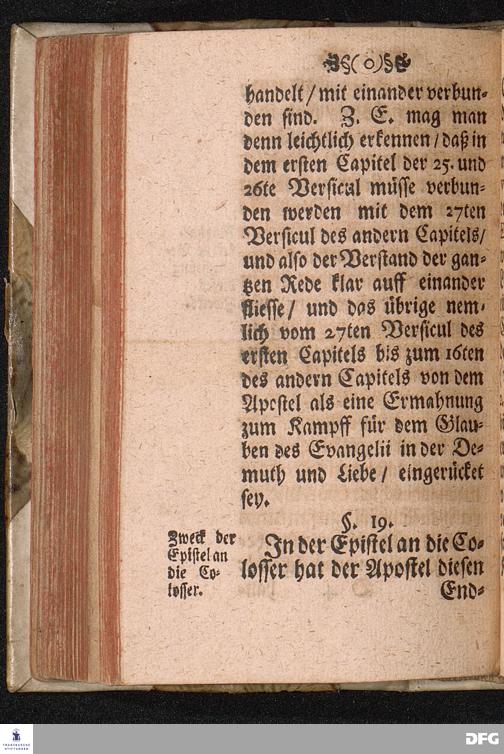 §( o )§
handelt / mit einander verbun-
den sind. Z. E. mag man
denn leichtlich erkennen / daß in
dem ersten Capitel der 25. und
26te Versicul müsse verbun-
den werden mit dem 27ten
Versicul des andern Capitels /
und also der Verstand der gan-
tzen Rede klar auff einander
fliesse / und das übrige nem-
lich vom 27ten Versicul des
ersten Capitels bis zum 16ten
des andern Capitels von dem
Apostel als eine Ermahnung
zum Kampff für dem Glau-
ben des Evangelii in der De-
muth und Liebe / eingerücket
sey.
§. 19.
Zweck der
Epistel an
die Co-
losser.
In der Epistel an die Co-
losser hat der Apostel diesen
End-
FRANCKESCHE
STIFTUNGEN
DFG